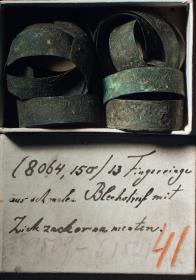 (8064, 150) 13 Fingerringe
aus schmalem Blechstreif mit
Zickzackornamenten.
41